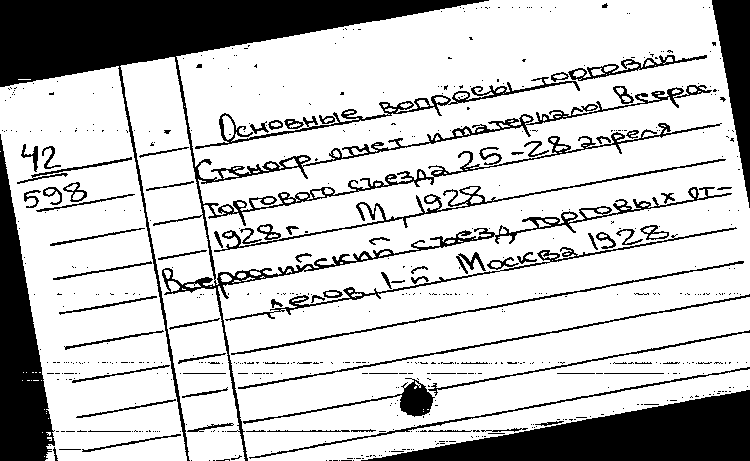 42
598
Основные вопросы торговли.
Стеногр. отчет и материалы Всерос.
торгового съезда 25-28 апреля
1928 г. М., 1928.
Всероссийский съезд торговых от=
делов, 1-й. Москва. 1928.